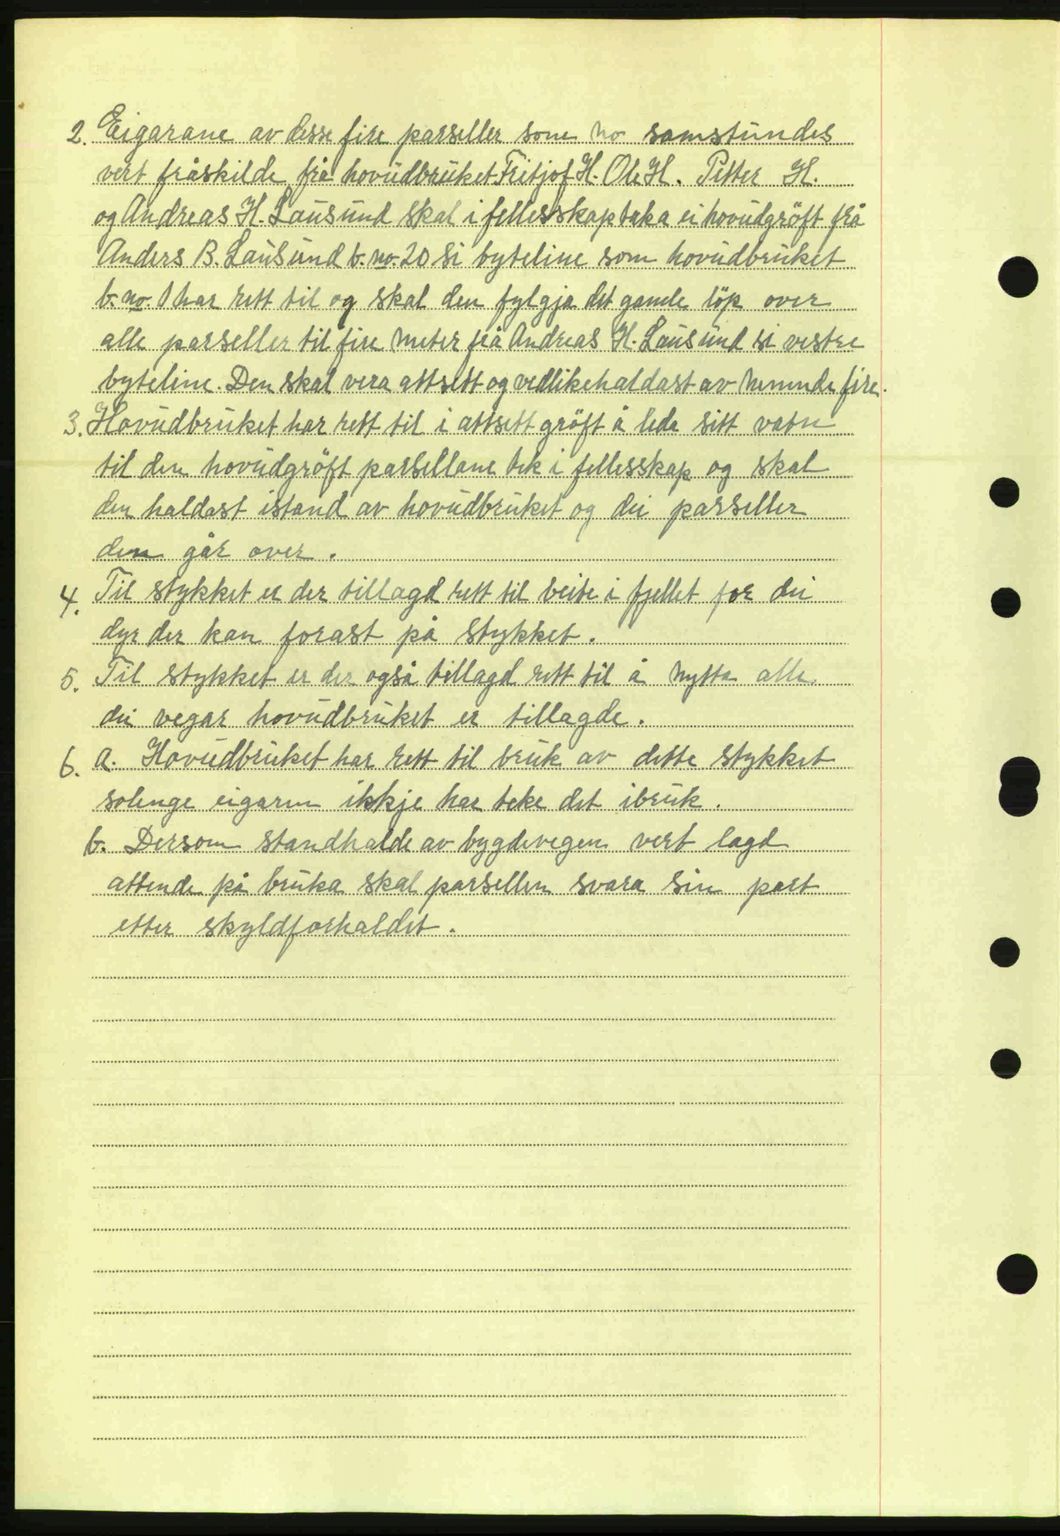 2. Eigarane av desse fire parseller som no samstundes
vert fråskilde frå hovudbruket Fritjof H. Ole H. Petter H.
og Andreas H. Lausund skal i fellesskap taka ei hovudgrøft frå
Anders B. Lausund b.no. 20 si byteline som hovudbruket
b.no. 1 har rett til og skal den fylgja det gamle løp over
alle parseller til fire meter frå Andreas H. Lausund si vestre
byteline. Den skal vera attsett og vedlikehaldast av nemnde fire.
3. Hovudbruket har rett til i attsett grøft å leda sitt vatn
til den hovudgrøft parsellane tek i fellesskap og skal
den haldast istand av hovudbruket og dei parseller
den går over.
4. Til stykket er der tillagd rett til beite i fjellet for dei
dyr der kan forast på stykket.
5. Til stykket er der også tillagd rett til å nytta alle
dei vegar hovudbruket er tillagde.
6. a. Hovudbruket har rett til bruk av dette stykket
solenge eigaren ikkje har teke det ibruk.
b. Dersom standhalde av bygdevegen vert lagd
attende på bruka skal parsellen svara sin part
etter skyldforhaldet.